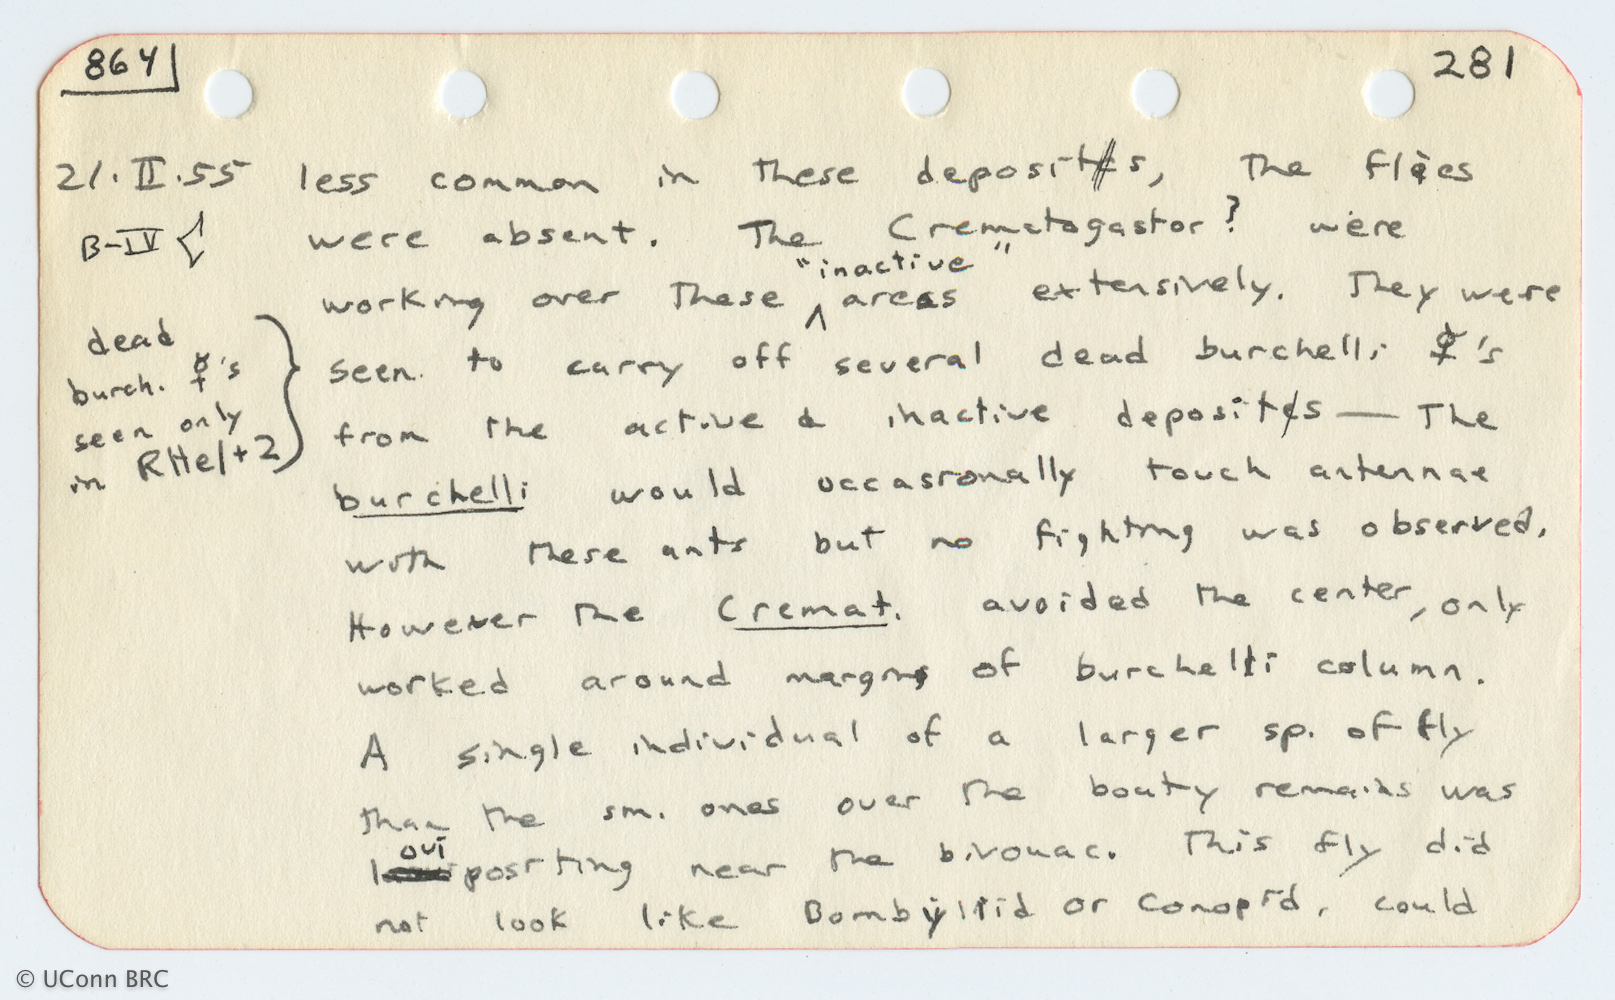 864
281
21.II.55 less common in these deposits, The flies
B-IV were absent. The Crematogastor? were
"inactive"
working over these areas extensively. They were
dead
seen to carry off several dead burchelli ☿'s
burch. ☿'s
from the active & inactive deposits — The
seen only
in RHel+2
burchelli would occasionally touch antennae
with these ants but no fighting was observed.
However the Cremat. avoided the center, only
worked around margins of burchelli column.
A single individual of a larger sp. of fly
than the sm. ones over the bouty remains was
ovipositing near the bivouac. This fly did
not look like Bombyliid or Conopid, could
© UConn BRC